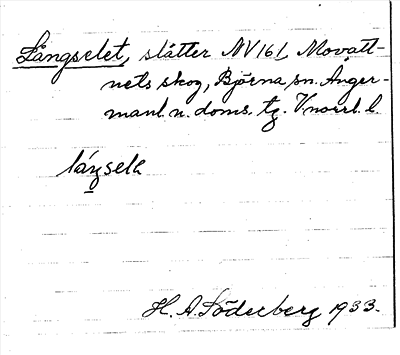 Långselet, slåtter NV 161 Movatt-
nets skog, Björna sn. Ånger-
manl. n. doms. tg. V.norrl. l.
H. A. Söderberg 1933.